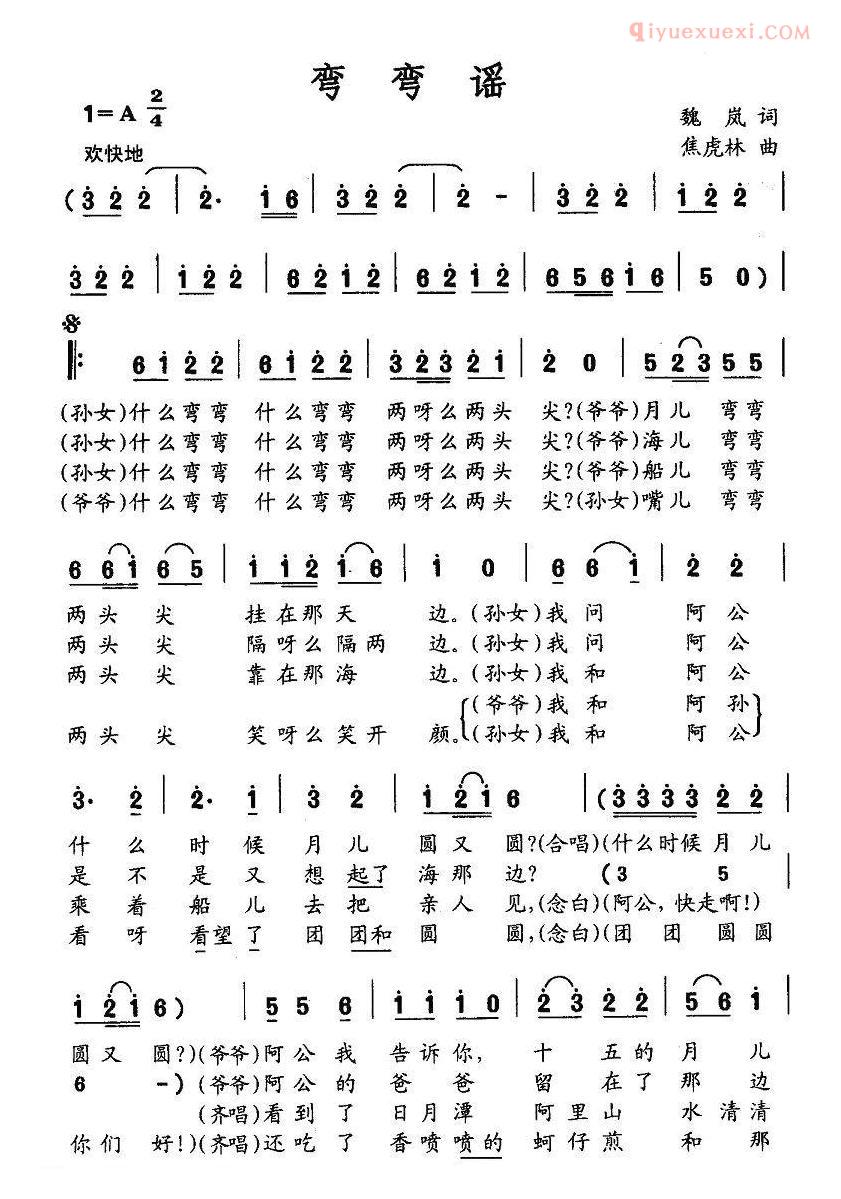 qiyuexuexi.com
弯 弯 谣
1=A 2/4
魏 岚 词
欢快地
焦虎林 曲
(3 2 2 | 2· 1 6 | 3 2 2 | 2 - | 3 2 2 | 1 2 2 |
3 2 2 | 1 2 2 | 6 2 1 2 | 6 2 1 2 | 6 5 6 1 6 | 5 0 ) |
6 1 2 2 | 6 1 2 2 | 3 2 3 2 1 | 2 0 | 5 2 3 5 5 |
(孙女)什么弯弯 什么弯弯 两呀么两头 尖?(爷爷)月儿 弯弯
(孙女)什么弯弯 什么弯弯 两呀么两头 尖?(爷爷)海儿 弯弯
(孙女)什么弯弯 什么弯弯 两呀么两头 尖?(爷爷)船儿 弯弯
(爷爷)什么弯弯 什么弯弯 两呀么两头 尖?(孙女)嘴儿 弯弯
6 6 1 6 5 | 1 1 2 1 6 | 1 0 | 6 6 1 | 2 2 |
两头 尖 挂在那天 边。(孙女)我问 阿公
两头 尖 隔呀么隔两 边。(孙女)我问 阿公
两头 尖 靠在那海 边。(孙女)我和 阿公
(爷爷)我和 阿孙
两头 尖 笑呀么笑开 颜。(孙女)我和 阿公
3· 2 | 2· 1 | 3 2 | 1 2 1 6 | (3 3 3 3 2 2 |
什 么 时 候 月 儿 圆又 圆?(合唱)(什么时候月儿
是 不 是 又 想 起了 海那 边? (3 5
乘 着 船 儿 去 把 亲人 见,(念白)(阿公,快走啊!)
看 呀 看望 了 团 团和 圆 圆,(念白)(团 团 圆圆
1 2 1 6 ) | 5 5 6 | 1 1 1 0 | 2 3 2 2 | 5 6 1 |
圆又 圆?)(爷爷)阿公我 告诉你, 十 五的 月 儿
6 -)(爷爷)阿公的 爸爸 留 在了 那 边
(齐唱)看到了 日月潭 阿里山 水清清
你们 好!)(齐唱)还吃了 香喷喷的 蚵仔煎 和那